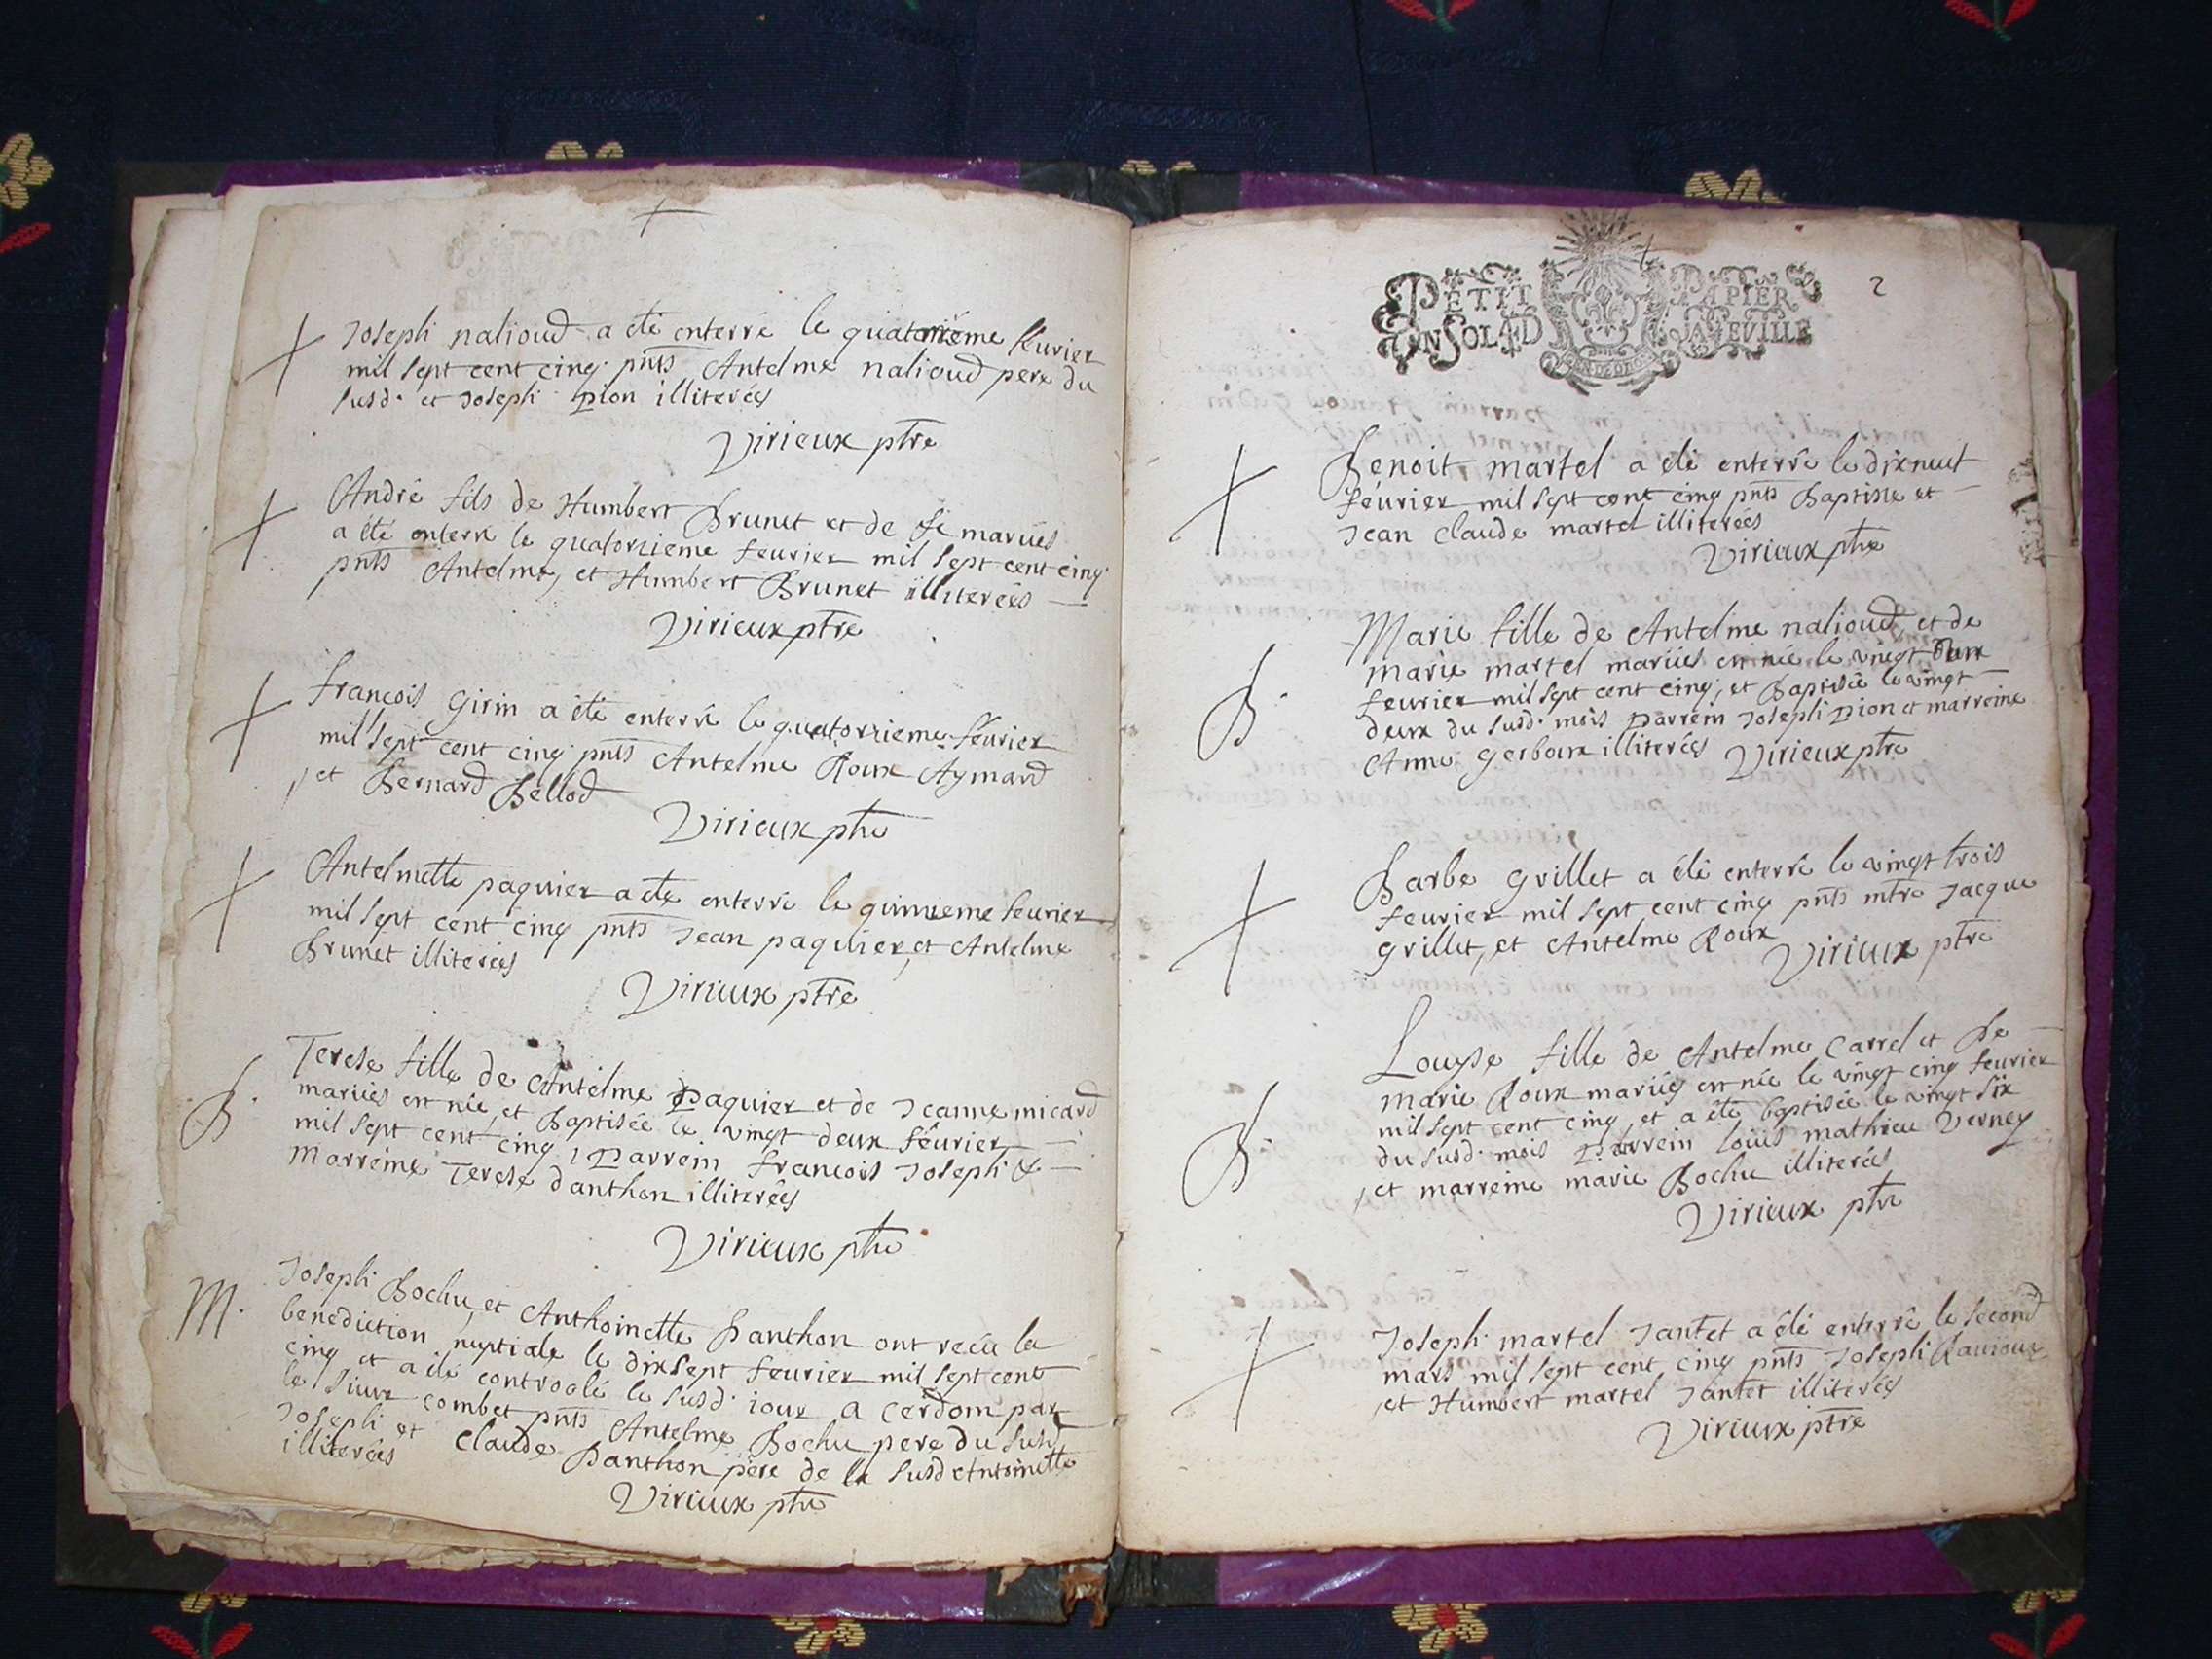 Joseph nalioud a eté enterré le quatorzieme feurier
mil sept cent cinq pnts Antelme nalioud pere du
susd. et Joseph pion illiterées
Virieux ptre
André fils de Humbert Brunet et de mariiés
a été enterré le quatorzieme feurier mil sept cent cinq
pnts Antelme, et Humbert Brunet illiterées
Virieux ptre
francois Girin a été enterré le quatorzieme féurier
mil sept cent cinq pnts Antelme Roux Aymard
, et Bernard Bellod
Virieux ptre
Antelmette paquier a ete enterré le quinzieme feurier
mil sept cent cinq pnts Jean paquier, et Antelme
Brunet illiterées
Virieux ptre
B. Terese fille de Antelme Paquier et de Jeanne micard
mariiés est née, et Baptisée le vingt deux féurier
mil sept cent cinq, Parrein francois Joseph &
Marreine Terese danthon illiterées
Virieux ptre
M. Joseph Bochu, et Anthoinette Danthon ont recû la
benediction nuptiale le dixsept feurier mil sept cent
cinq et a été controolé le susd. iour a Cerdom par
le Sieur combet pnts Antelme Bochu pere du susd
Joseph et Claude Danthon père de la susd Antoinette
illiterées
Virieux ptre
2
PETIT PAPIER
UN SOL 4 D LA FEVILLE
Benoit martel a eté enterré le dixnuit
féurier mil sept cent cinq pnts Baptiste et
Jean Claude martel illiterées
Virieux ptre
Marie fille de Antelme nalioud, et de
B. marie martel mariiés est née le vingt Deux
feurier mil sept cent cinq, et Baptisée le vingt
deux du susd. mois Parrein Joseph Pion et marreine
Anne Gerboux illiterées Virieux ptre
Barbe Grillet a été enterré le vingt trois
feurier mil sept cent cinq pnts mtre Jacque
Grillet, et Antelme Roux
Virieux ptre
Louyse fille de Antelme Carrel et De
marie Roux mariiés est née le vingt cinq feurier
mil sept cent cinq, et a été baptisée le vingt six
B. du susd. mois Parrein loüis mathieu Verney
, et marreine marie Bochu illiterées
Virieux ptre
Joseph martel Jantet a été enterré le second
mars mil sept cent cinq pnts Joseph Rauioux
, et Humbert martel Jantet illiterées
Virieux ptre